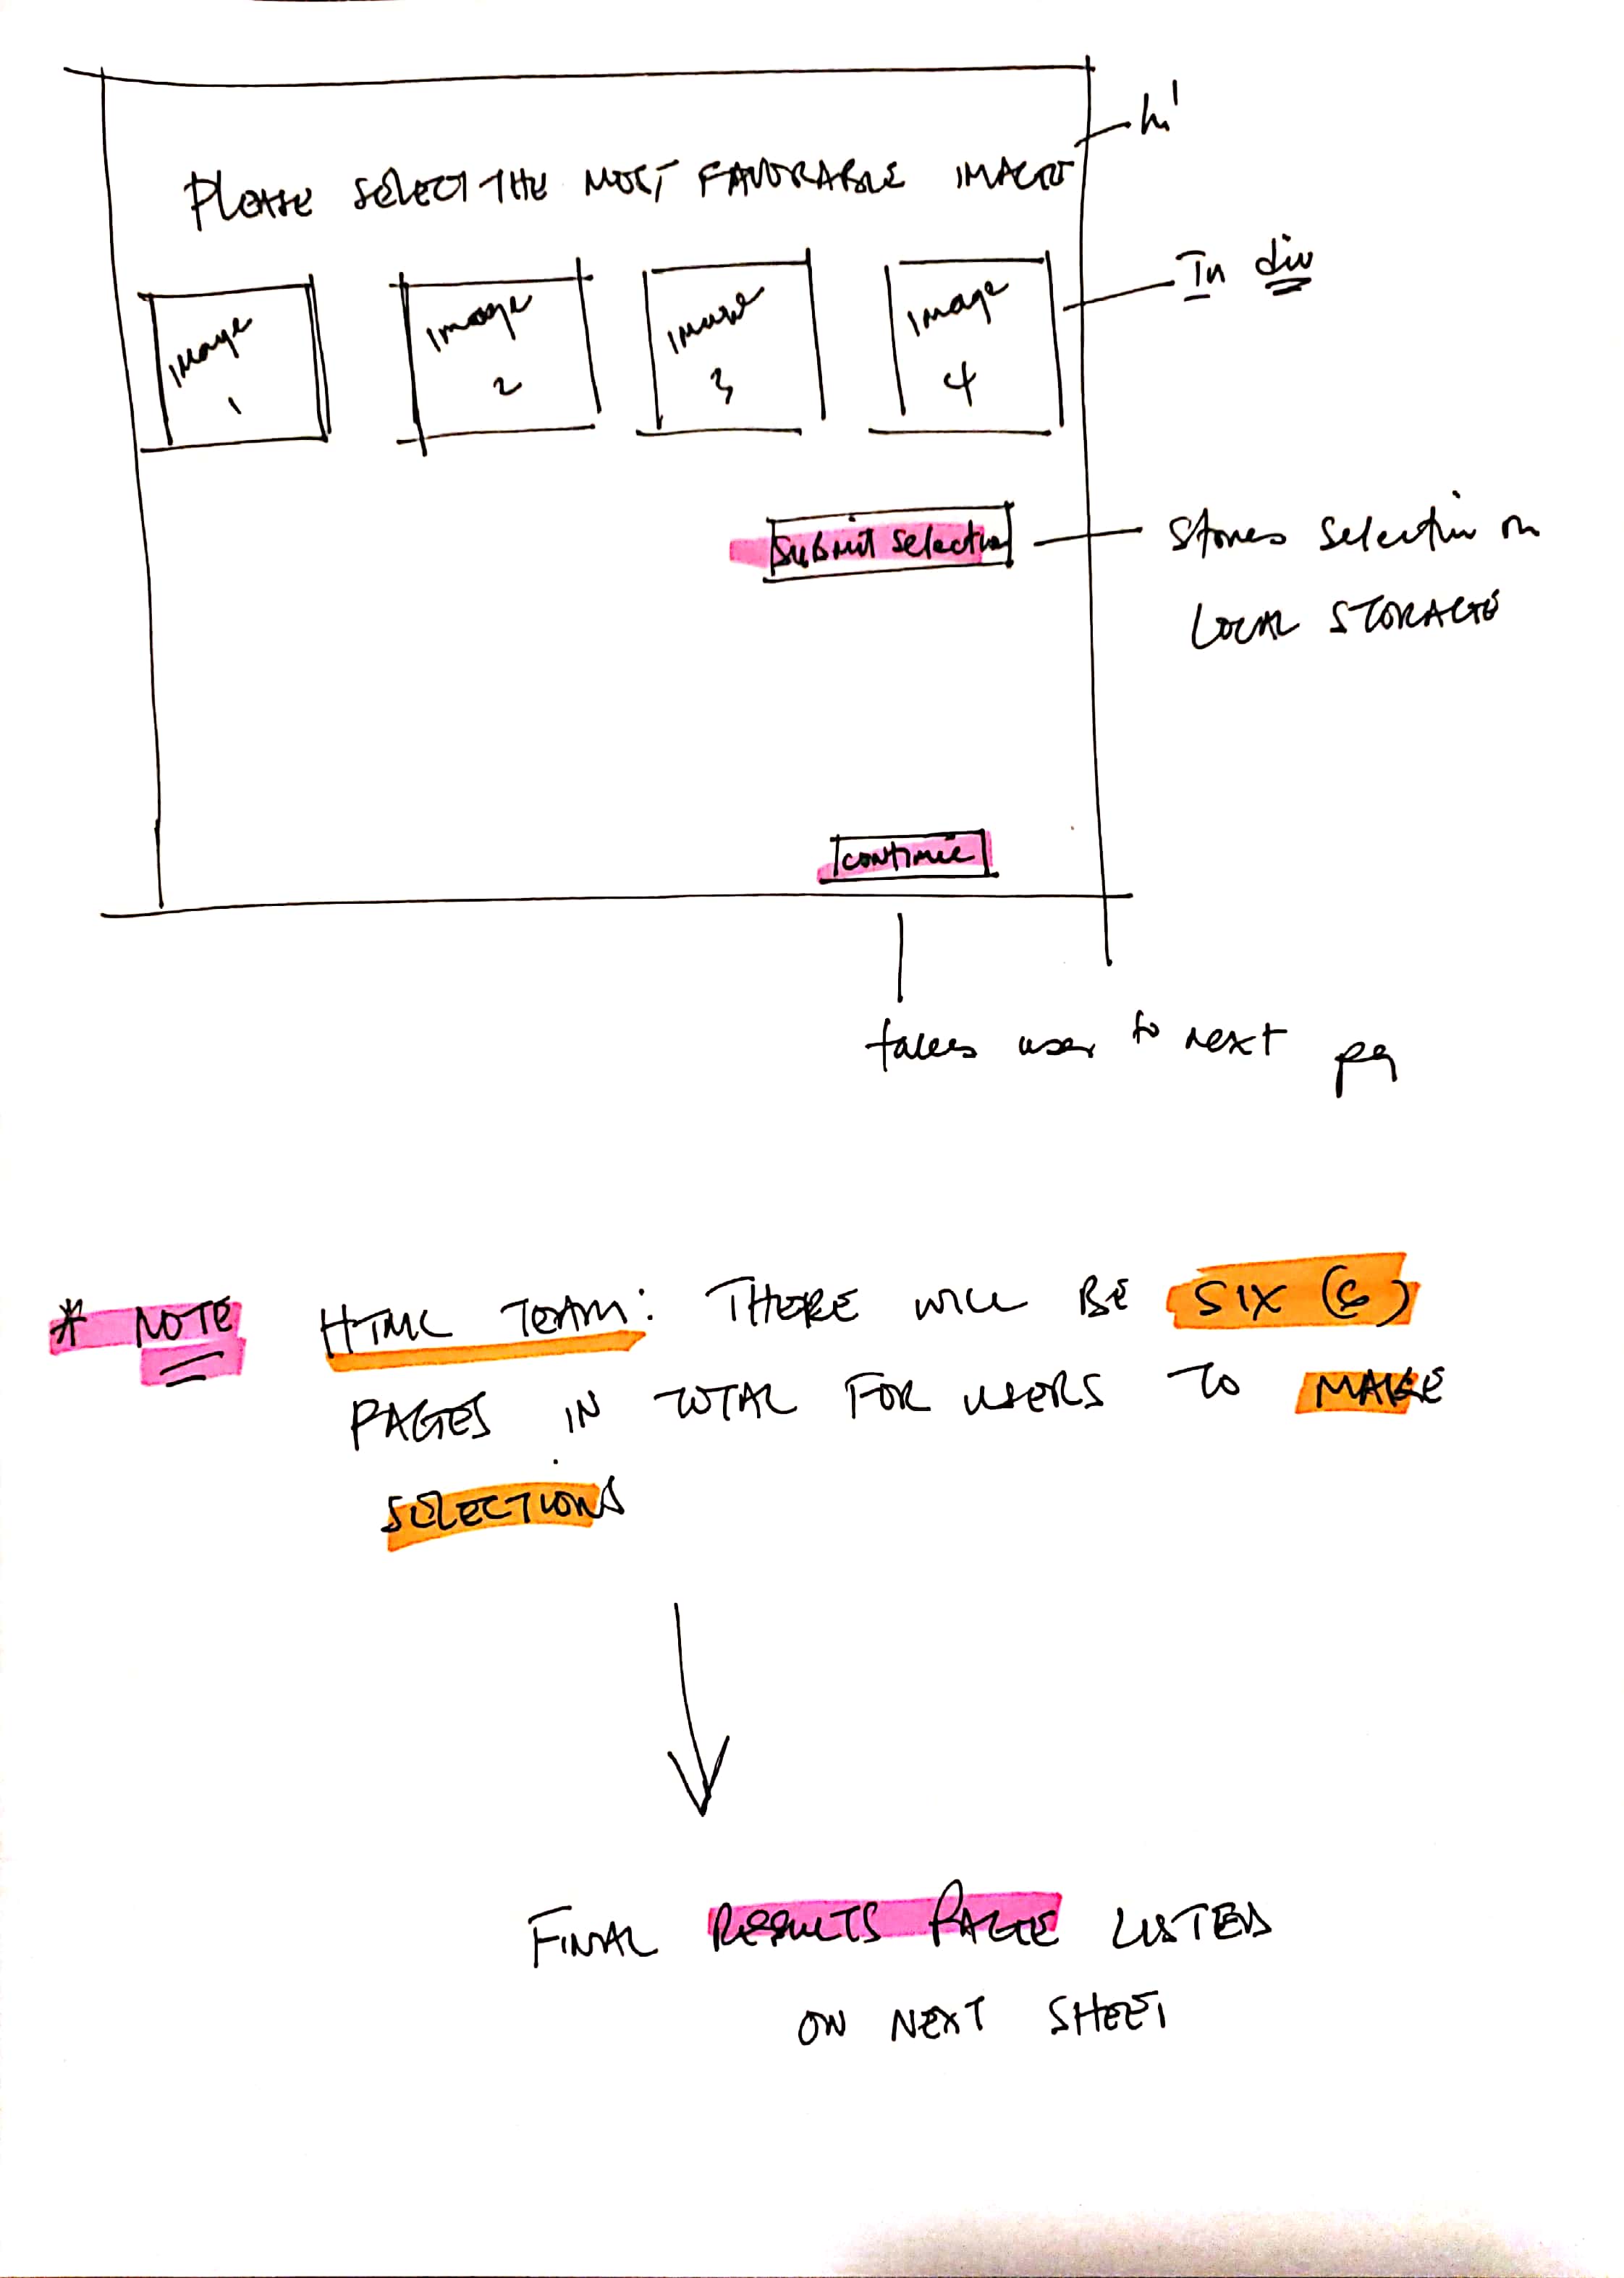 h1
PLEASE SELECT THE MOST FAVORABLE IMAGE
In div
Image 1
Image 2
Image 3
Image 4
Submit Selection
Stores Selection on
LOCAL STORAGE
continue
takes user to next pg
* NOTE HTML TEAM: THERE WILL BE SIX (6)
PAGES IN TOTAL FOR USERS TO MAKE
SELECTIONS
FINAL RESULTS PAGE LISTED
ON NEXT SHEET